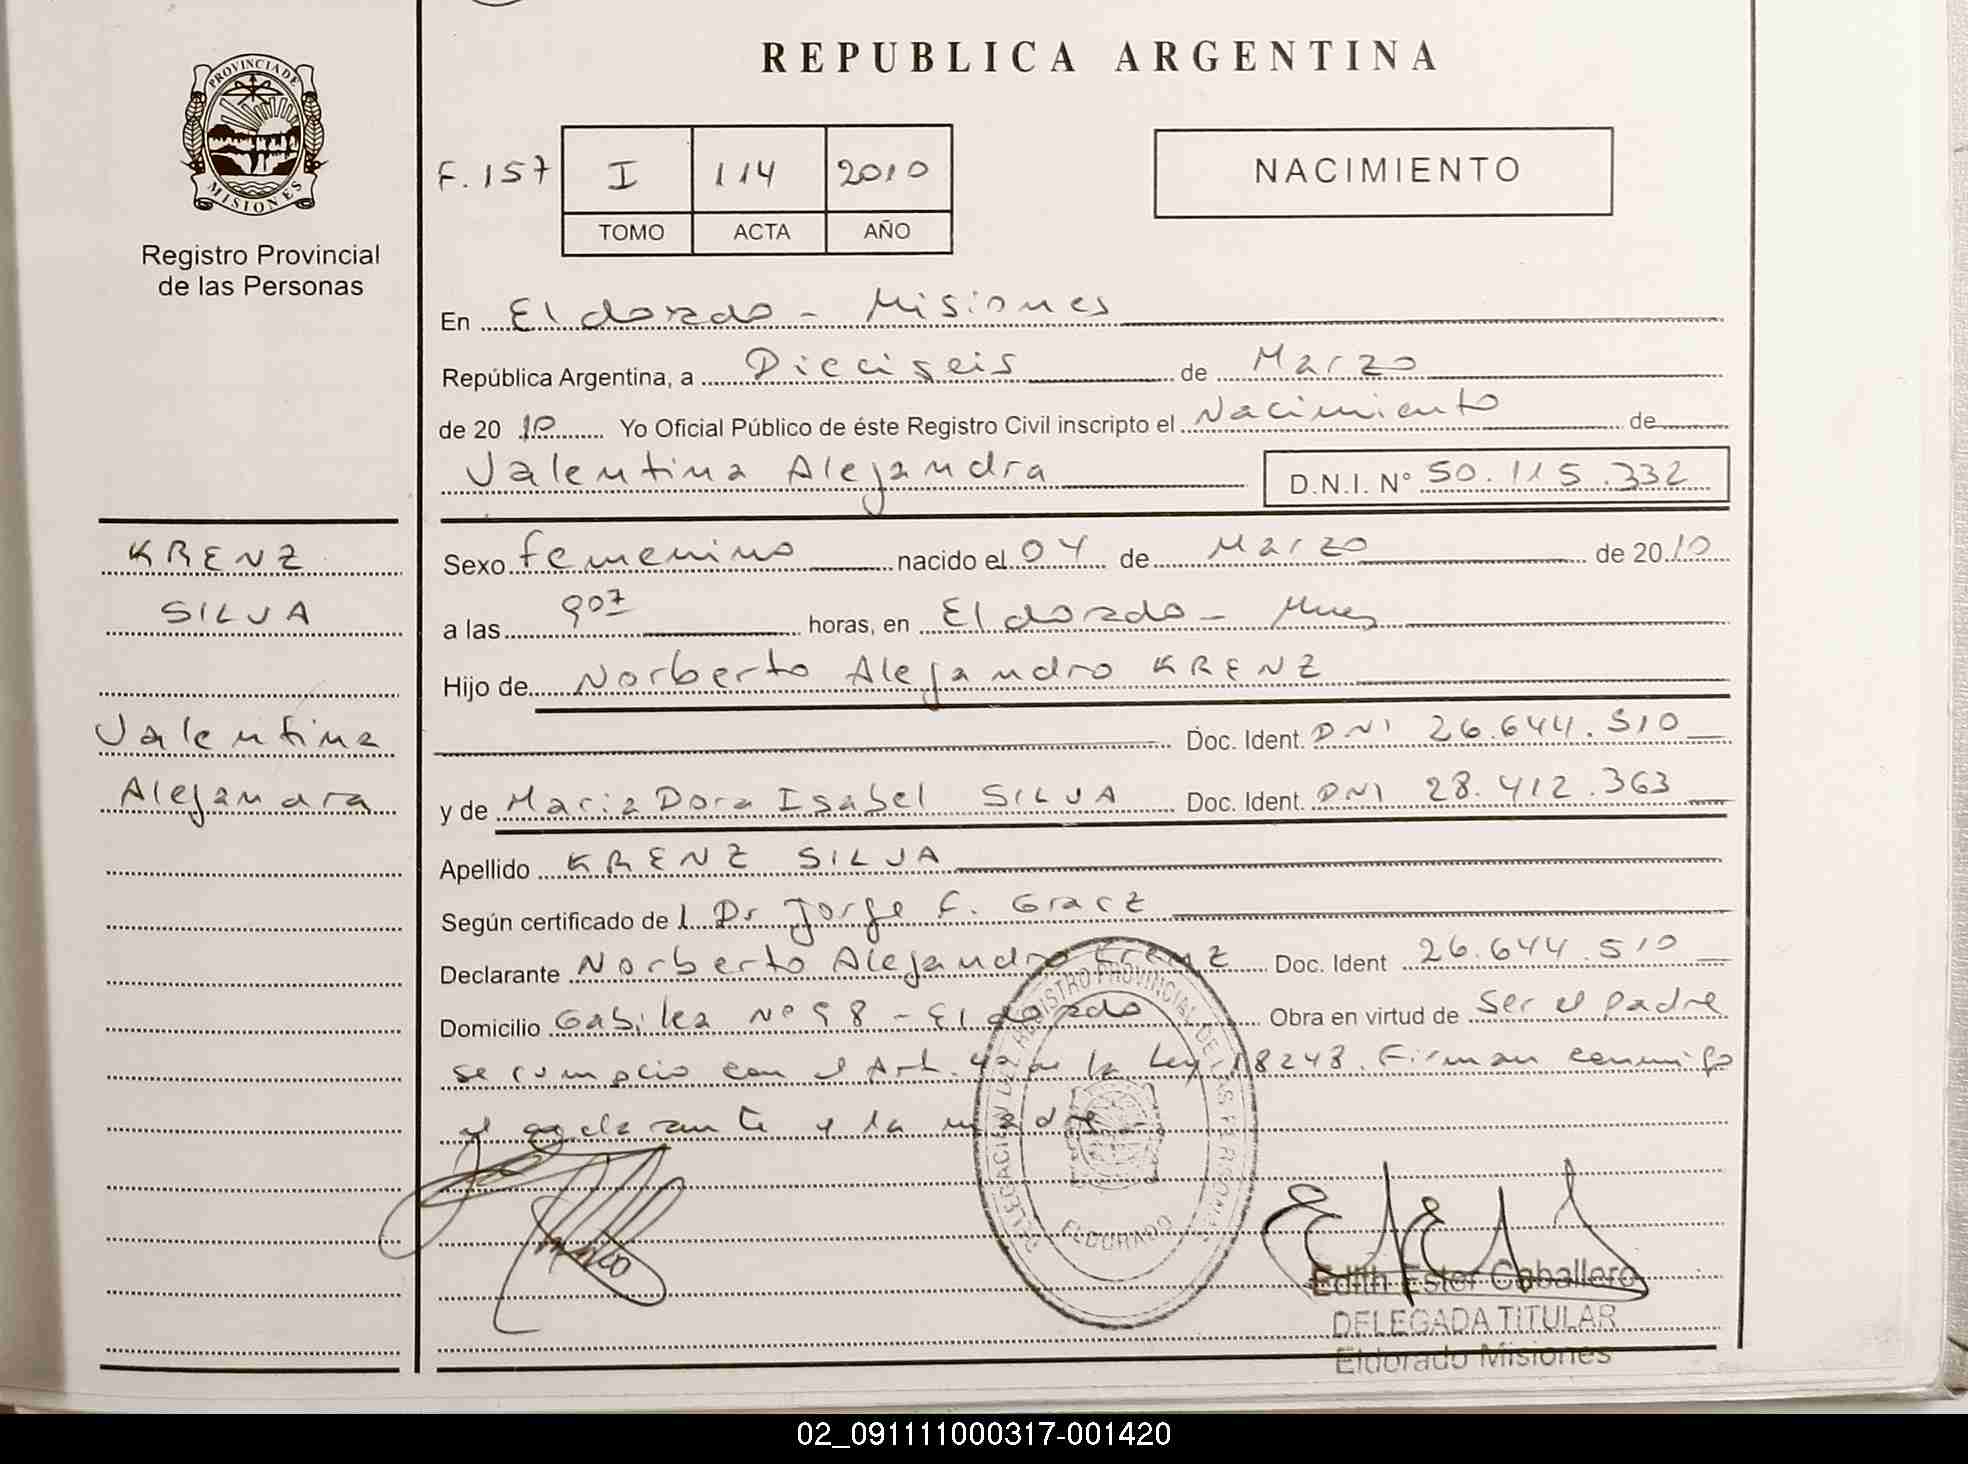 REPUBLICA ARGENTINA
PROVINCIA DE
MISIONES
Registro Provincial
de las Personas
F. 157 I 114 2010
TOMO ACTA AÑO
NACIMIENTO
En Eldorado - Misiones
República Argentina, a Dieciseis de Marzo
de 20 10 Yo Oficial Público de éste Registro Civil inscripto el Nacimiento de
Valentina Alejandra D.N.I. N° 50.115.332
KRENZ
SILVA
Valentina
Alejandra
Sexo femenino nacido el 04 de Marzo de 2010
a las 907 horas, en Eldorado - Mnes
Hijo de Norberto Alejandro KRENZ
Doc. Ident. DNI 26.644.510
y de Maria Dora Isabel SILVA Doc. Ident. DNI 28.412.363
Apellido KRENZ SILVA
Según certificado de l Dr Jorge F. Gracz
Declarante Norberto Alejandro Krenz Doc. Ident 26.644.510
Domicilio N° 98 - Eldorado Obra en virtud de ser el padre
se cumplio con el Art. 42 de la Ley 18248. Firman conmigo
el declarante y la madre
DELEGACIÓN REGISTRO PROVINCIAL DE LAS PERSONAS
ELDORADO
Edith Ester Caballero
DELEGADA TITULAR
Eldorado Misiones
02_091111000317-001420